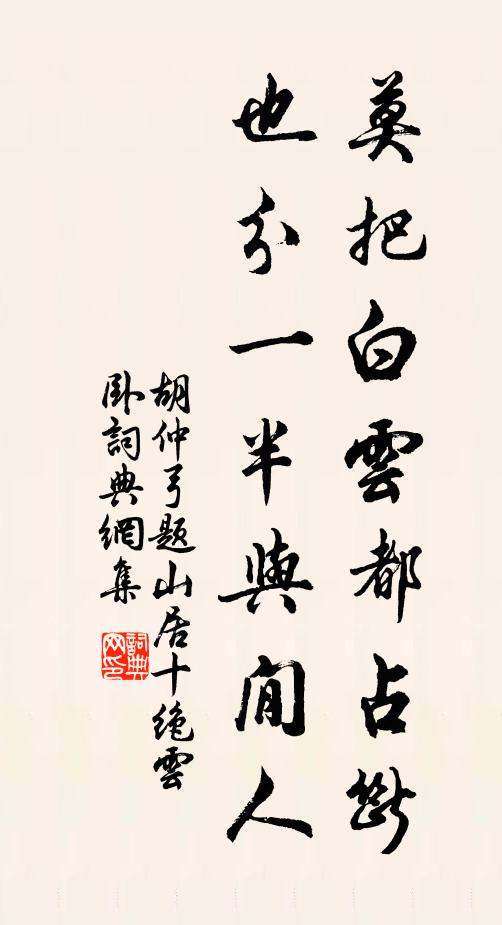 莫把白雲都占斷
也分一半與閒人
胡仲弓題山居十絶雲
臥詞典網集
詞典網印